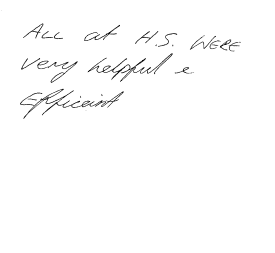 ALL at H.S. WERE
very helpful e
Efficeint